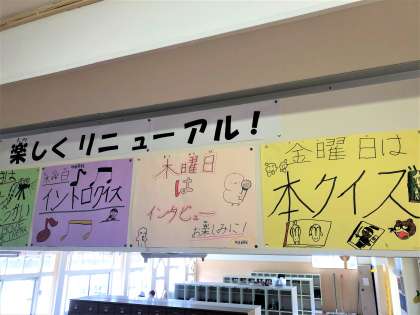 楽しくリニューアル！
曜日
イントロクイズ
木曜日
は
インタビュー
お楽しみに！
金曜日は
本クイズ